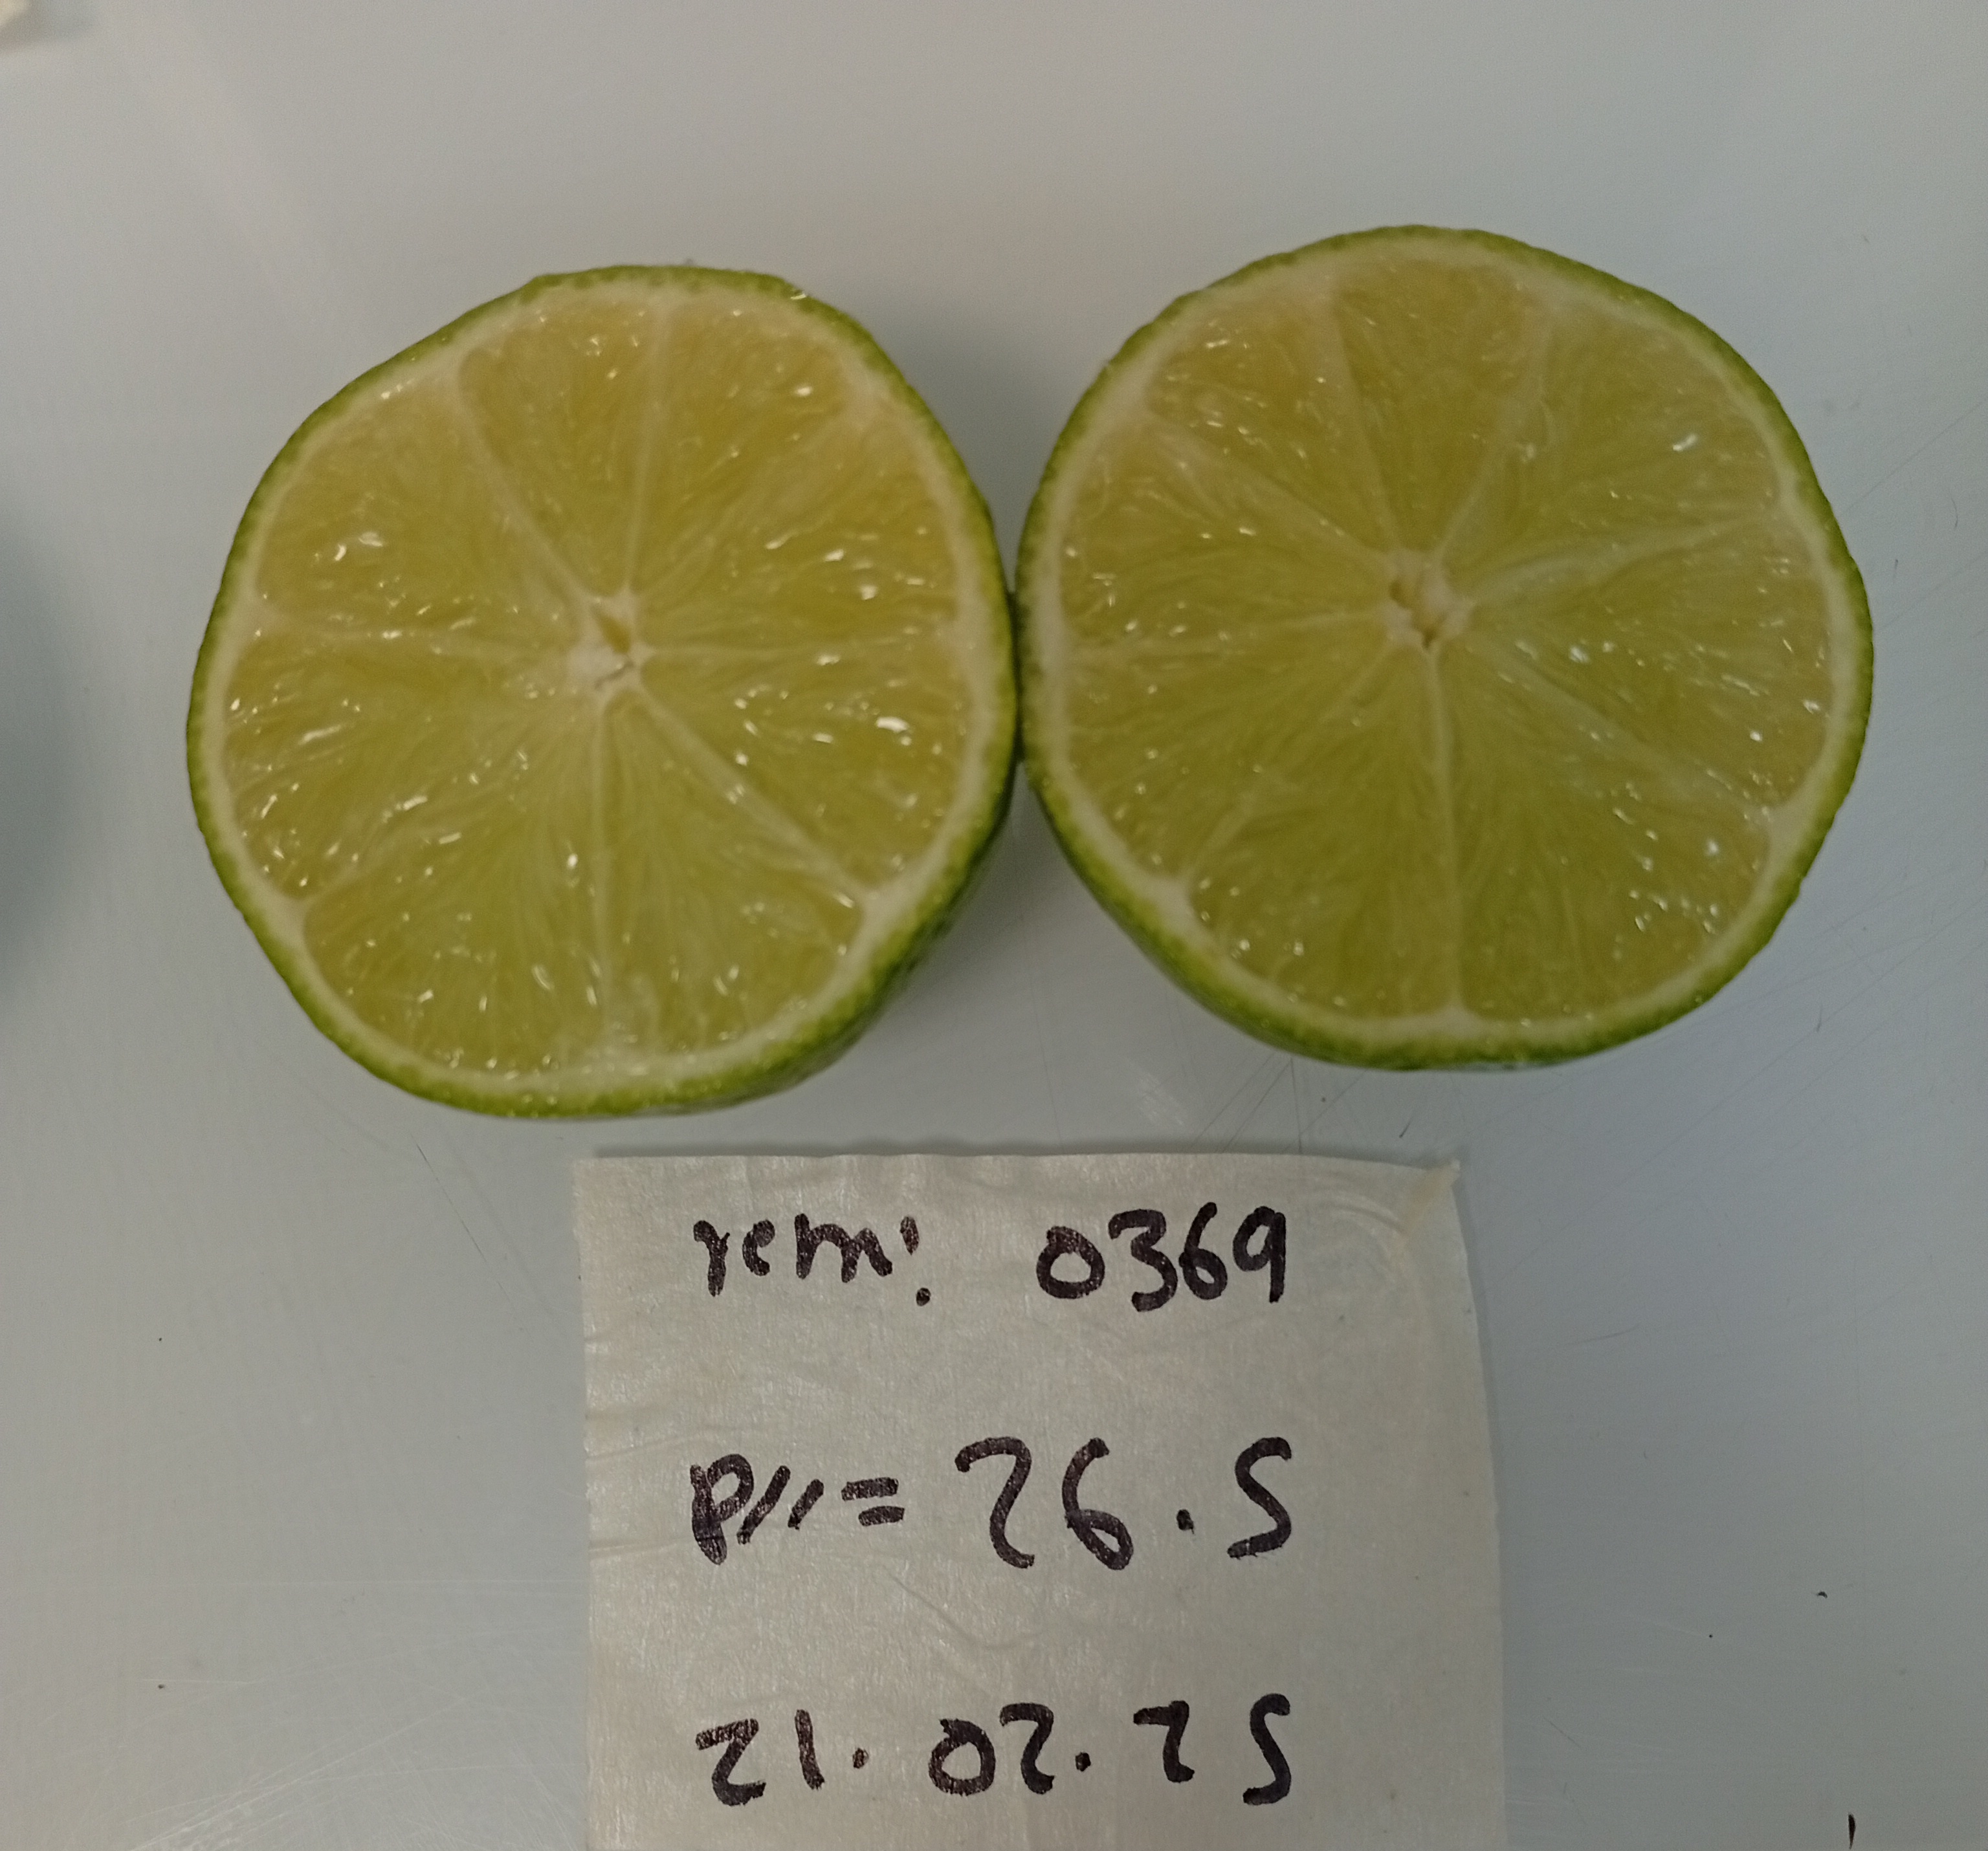 rem: 0369
P11 = 26.5
21.02.25